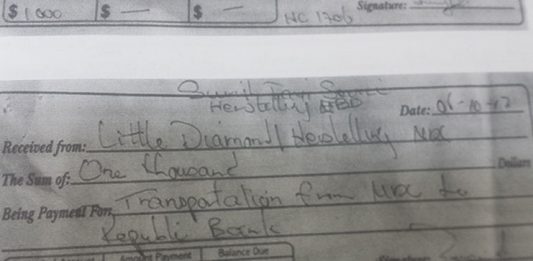 $ 1000 $ — $ — NC 1706 Signature:
Herstelling EBD
Date: 06-10-17
Received from: Little Diamond/Herstelling NDC
The Sum of: One thousand Dollars
Being Payment For: Transpatation from NDC to
Republi Bank
Amount Payment Balance Due